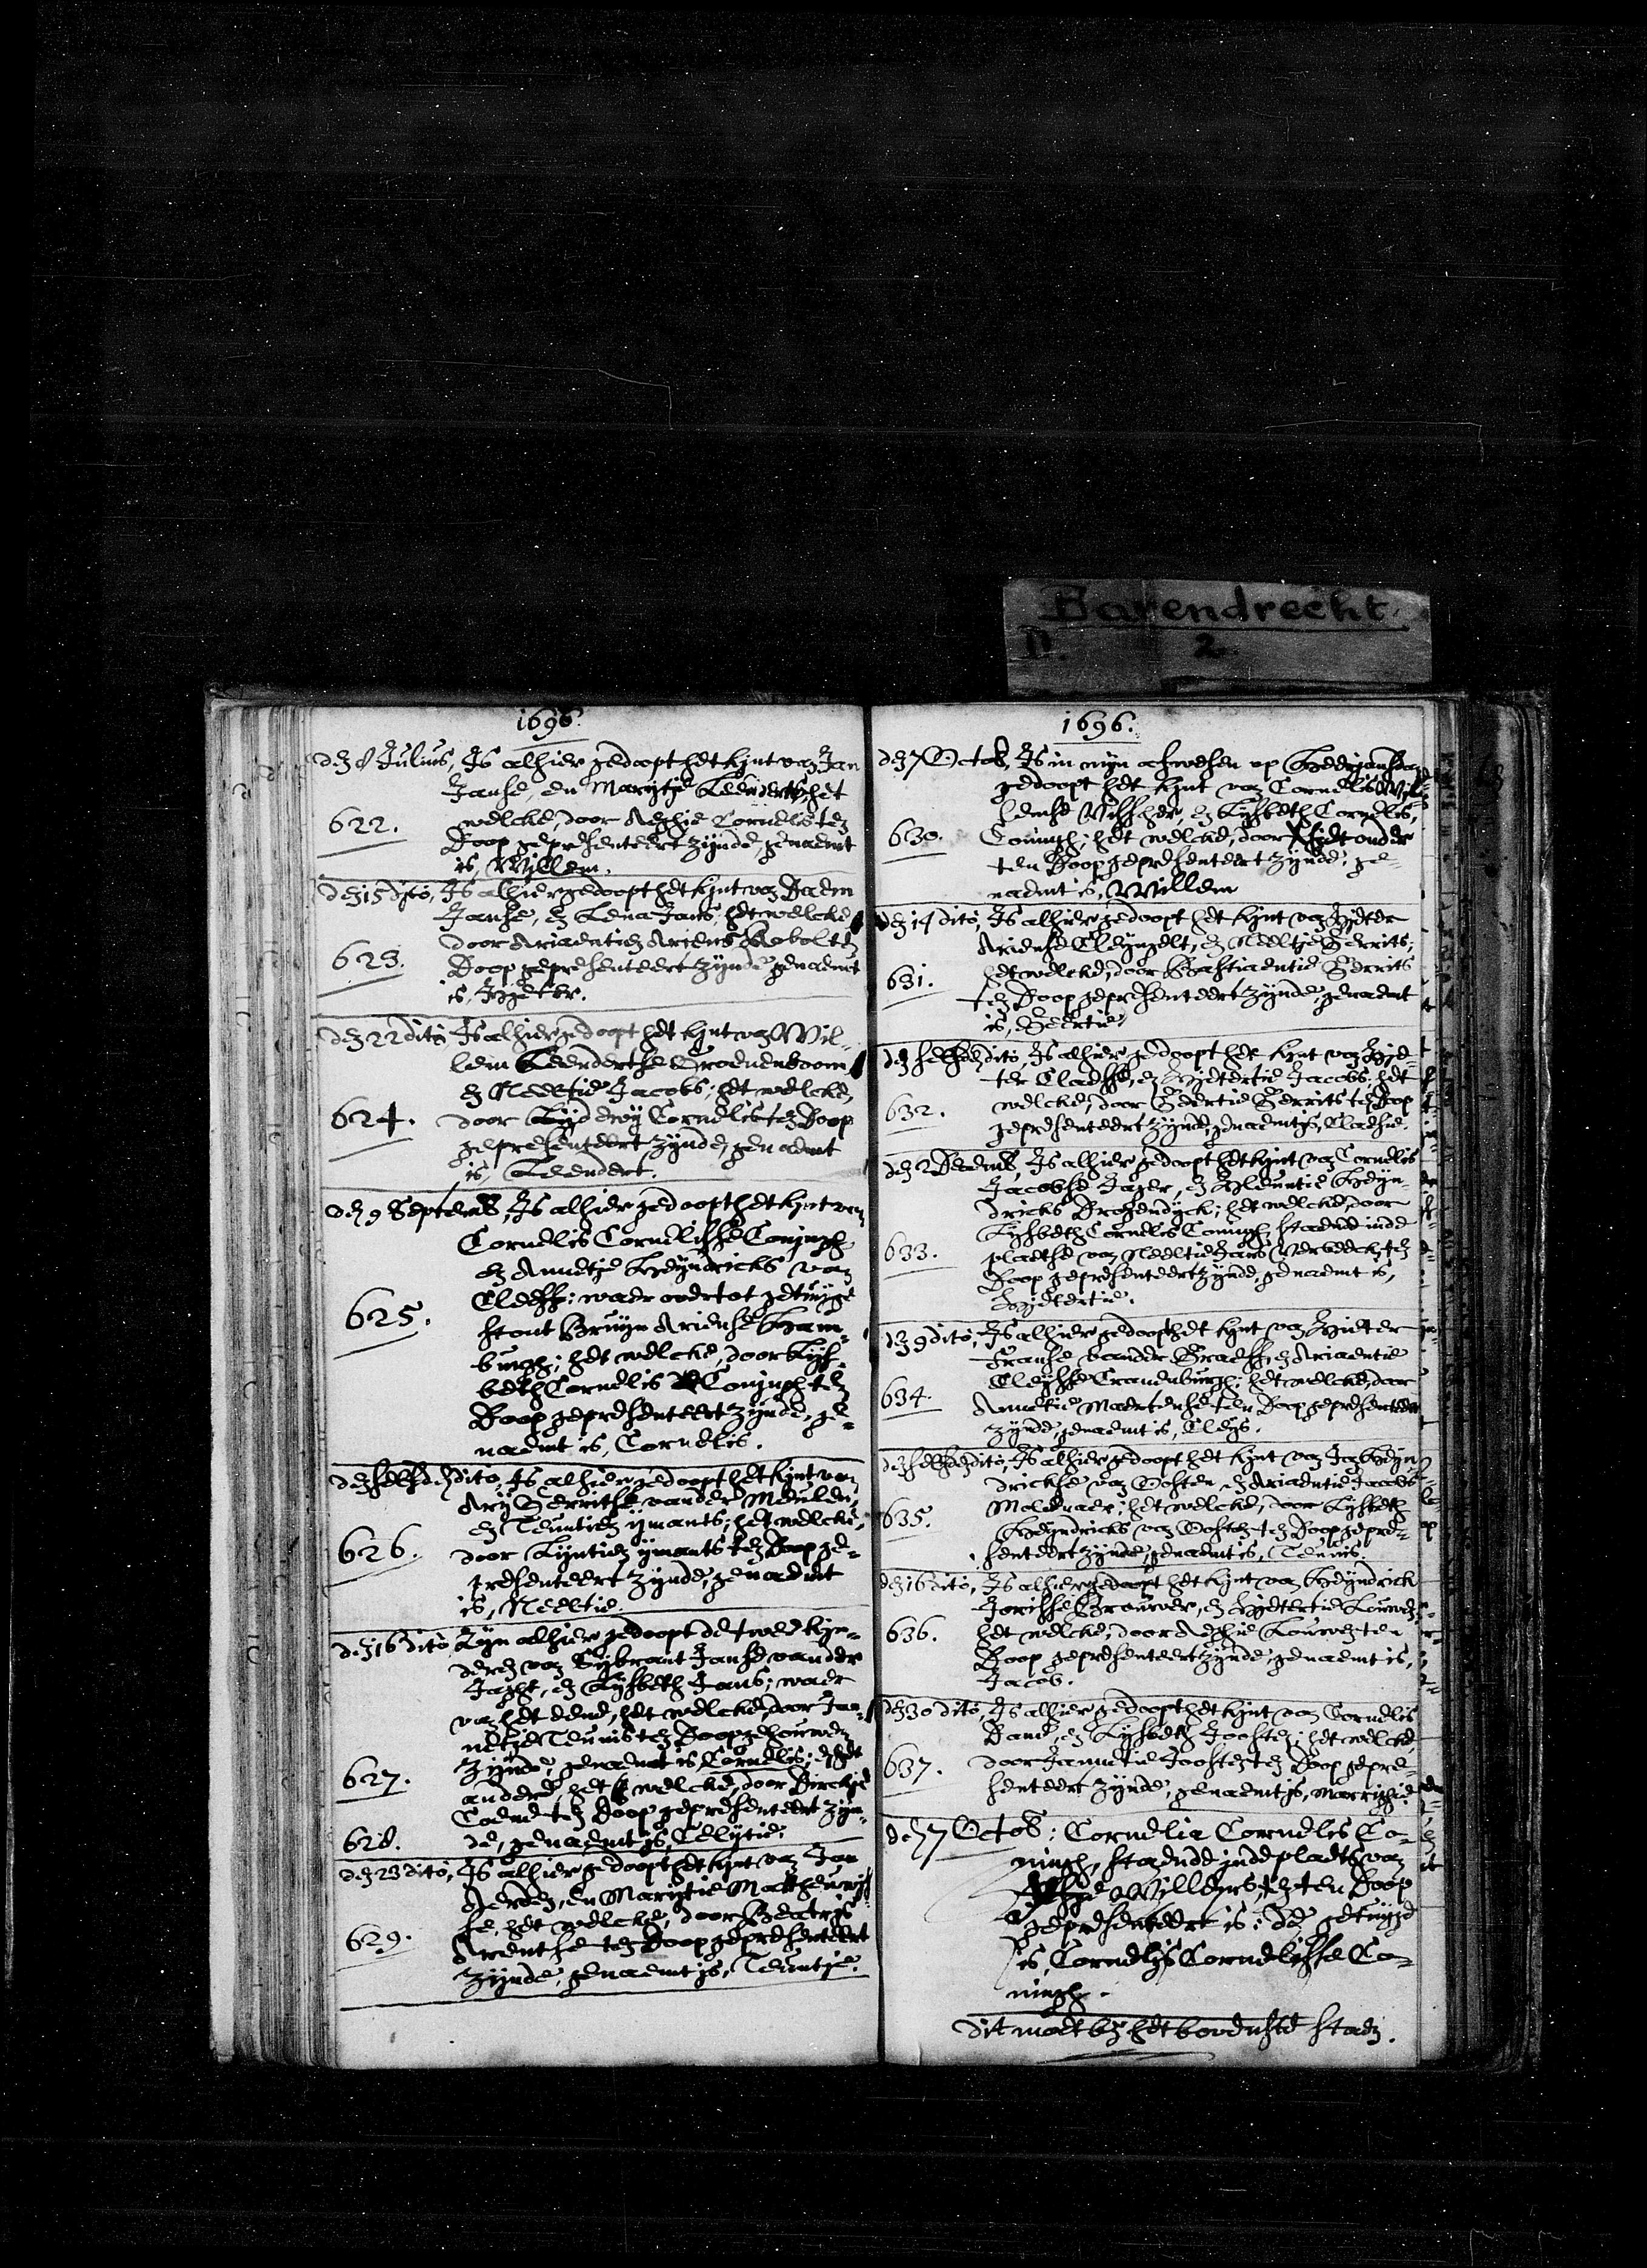 Barendrecht.
D. 2
1696.
den 8 Julius, Is alhier gedoopt het kynt van Jan
Janse, en Marijtje Leenderts, het
622. welcke, door Aeghie Cornelis ten
Doop gepresenteert zijnde, genaemt
is, Willem.
den 15 dito, Is alhier gedoopt het kynt van Daem
Janse, en Lena Jans; het welcke
door Ariaentien Ariens ten
623. Doop gepresenteert zijnde genaemt
is, Pieter.
den 22 dito, Is alhier gedoopt het kynt van Wil-
lem Leendertse Groenenboom
en Neeltie Jacobs; het welcke,
624. door Lijdewy Cornelis ten Doop
gepresenteert zijnde, genaemt
is, Leendert.
den 9 Septemb, Is alhier gedoopt het kynt van
Cornelis Cornelisse Coningh
en Annetje Heyndricks van
Cleeff: waer over tot getuijge
625. stont Bruyn Ariense Ham-
burgh; het welcke, door Lijs-
beth Cornelis Coningh ten
Doop gepresenteert zijnde, ge-
naemt is, Cornelis.
den selfden dito, Is alhier gedoopt het kynt van
Arij Gerritse vander Meulen,
en Teuntien ijmants; het welcke,
626. door Lijntien ijmants ten Doop ge-
presenteert zijnde, genaemt
is, Neeltie.
den 16 dito Zijn alhier gedoopt de twee kyn-
deren van Sijbrant Janse vander
Jaght, en Lijsbeth Jans; waer
van het eene, het welcke, door Jan-
netje Teunis ten Doop gehouwen
zijnde, genaemt is Cornelis; en het
627. andere, het welcke, door Dirckje
Coene ten Doop gepresenteert zijn-
628. de, genaemt is, Celijtie.
den 23 dito, Is alhier gedoopt het kynt van Jan
Aerden, en Marijtie Mattheuwis
se, het welcke, door Beatris
629. Arentse ten Doop gepresenteert
zijnde, genaemt is, Teuntje.
1696.
den 7 Octob, Is in mijn afwesen op Heerjansdam
gedoopt het kynt van Cornelis Wil-
lemse Visscher, en Lijsbeth Cornelis,
630. Coningh; het welcke, door
ten Doop gepresenteert zijnde, ge-
naemt is, Willem
den 14 dito, Is alhier gedoopt het kynt van Pieter
Ariense Cleijngelt, en Neeltje Gerrits;
het welcke, door Bastiaentie Gerrits
631. ten Doop gepresenteert zijnde, genaemt
is, Geertie.
den selfden dito, Is alhier gedoopt het kynt van Pie
ter Claesse, en Pietertie Jacobs; het
632. welcke, door Geertie Gerrits ten Doop
gepresenteert zijnde, genaemt is, Claesie.
den 2 Decemb, Is alhier gedoopt het kynt van Cornelis
Jacobse Jager, en Pleuntie Heyn-
dricks Drogendijck; het welcke, door
Lijsbeth Cornelis Coningh, staende inde
633. plaetse van Neeltie Jans Verveeck, ten
Doop gepresenteert zijnde, genaemt is,
Pietertie.
den 9 dito, Is alhier gedoopt het kynt van Pieter
Franse vander Graeff, en Ariaentie
Cleijsse Cranenburgh; het welcke, door
634. Annetie Maertense ten Doop gepresenteert
zijnde, genaemt is, Cleijs.
den selfden dito, Is alhier gedoopt het kynt van Jan Heyn
drickse van Oosten, en Ariaentie Jacobs
Molenaer; het welcke, door Lijsbeth
635. Heyndricks van Oosten ten Doop gepre-
senteert zijnde, genaemt is, Teunis.
den 16 dito, Is alhier gedoopt het kynt van Heyndrick
Jorisse Brouwer, en Pietertie Louwen
636. het welcke, door Aeghie Louwen ten
Doop gepresenteert zijnde, genaemt is,
Jacob.
den 30 dito, Is alhier gedoopt het kynt van Cornelis
Bane, en Lijsbeth Joosten; het welcke
637. door Jannetie Joosten ten Doop gepre-
senteert zijnde, genaemt is, Marrighie.
den 7 Octob: Cornelia Cornelis Co-
ningh, staende inde plaets van
Willems, ten Doop
gepresenteert is; De getuijge
is, Cornelis Cornelisse Co-
ningh.
dit moet bij het bovenste staen.